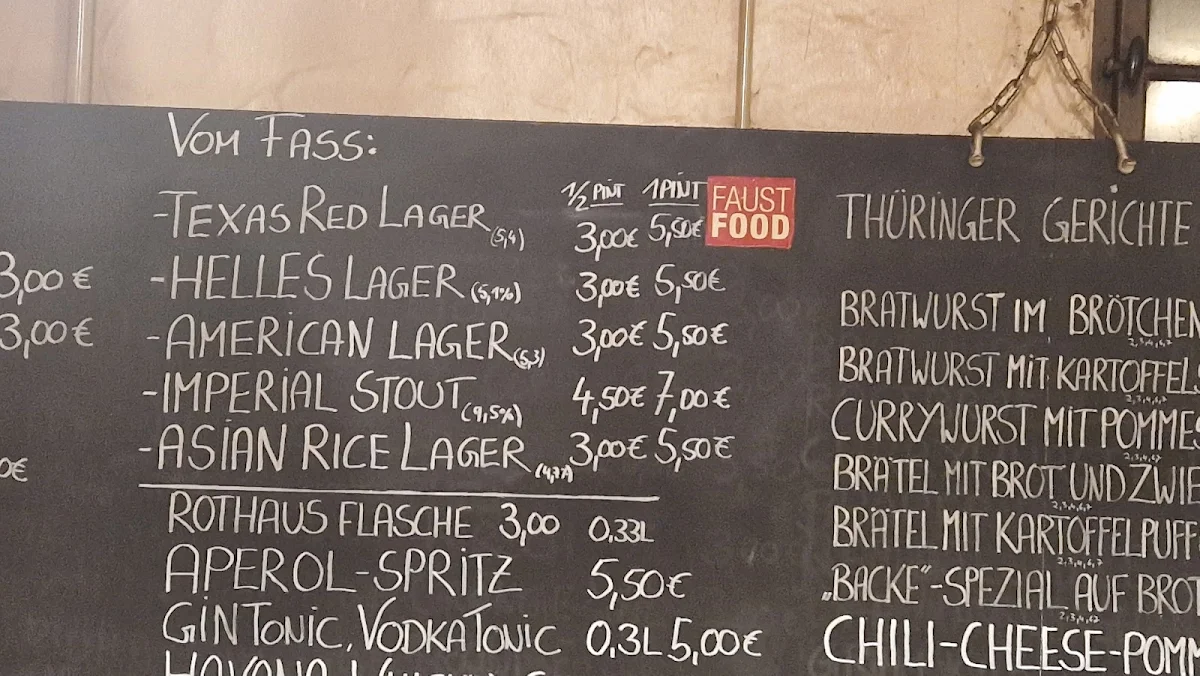 VOM FASS:
1/2 PINT 1 PINT
-TEXAS RED LAGER (5,4) 3,00€ 5,50€
-HELLES LAGER (5,1%) 3,00€ 5,50€
-AMERICAN LAGER (5,3) 3,00€ 5,50€
-IMPERIAL STOUT (9,5%) 4,50€ 7,00€
-ASIAN RICE LAGER (4,7%) 3,00€ 5,50€
ROTHAUS FLASCHE 3,00 0,33L
APEROL-SPRITZ 5,50€
GIN TONIC, VODKA TONIC 0,3L 5,00€
3,00€
3,00€
0€
FAUST
FOOD
THÜRINGER GERICHTE
BRATWURST IM BRÖTCHEN
2,3,4,6,7
BRATWURST MIT KARTOFFELS
2,3,4,6,7
CURRYWURST MIT POMMES
2,3,4,6,7
BRÄTEL MIT BROT UND ZWIE
2,3,4,6,7
BRÄTEL MIT KARTOFFELPUFF
2,3,4,6,7
„BACKE"-SPEZIAL AUF BROT
2,3,4,6,7
CHILI-CHEESE-POMM